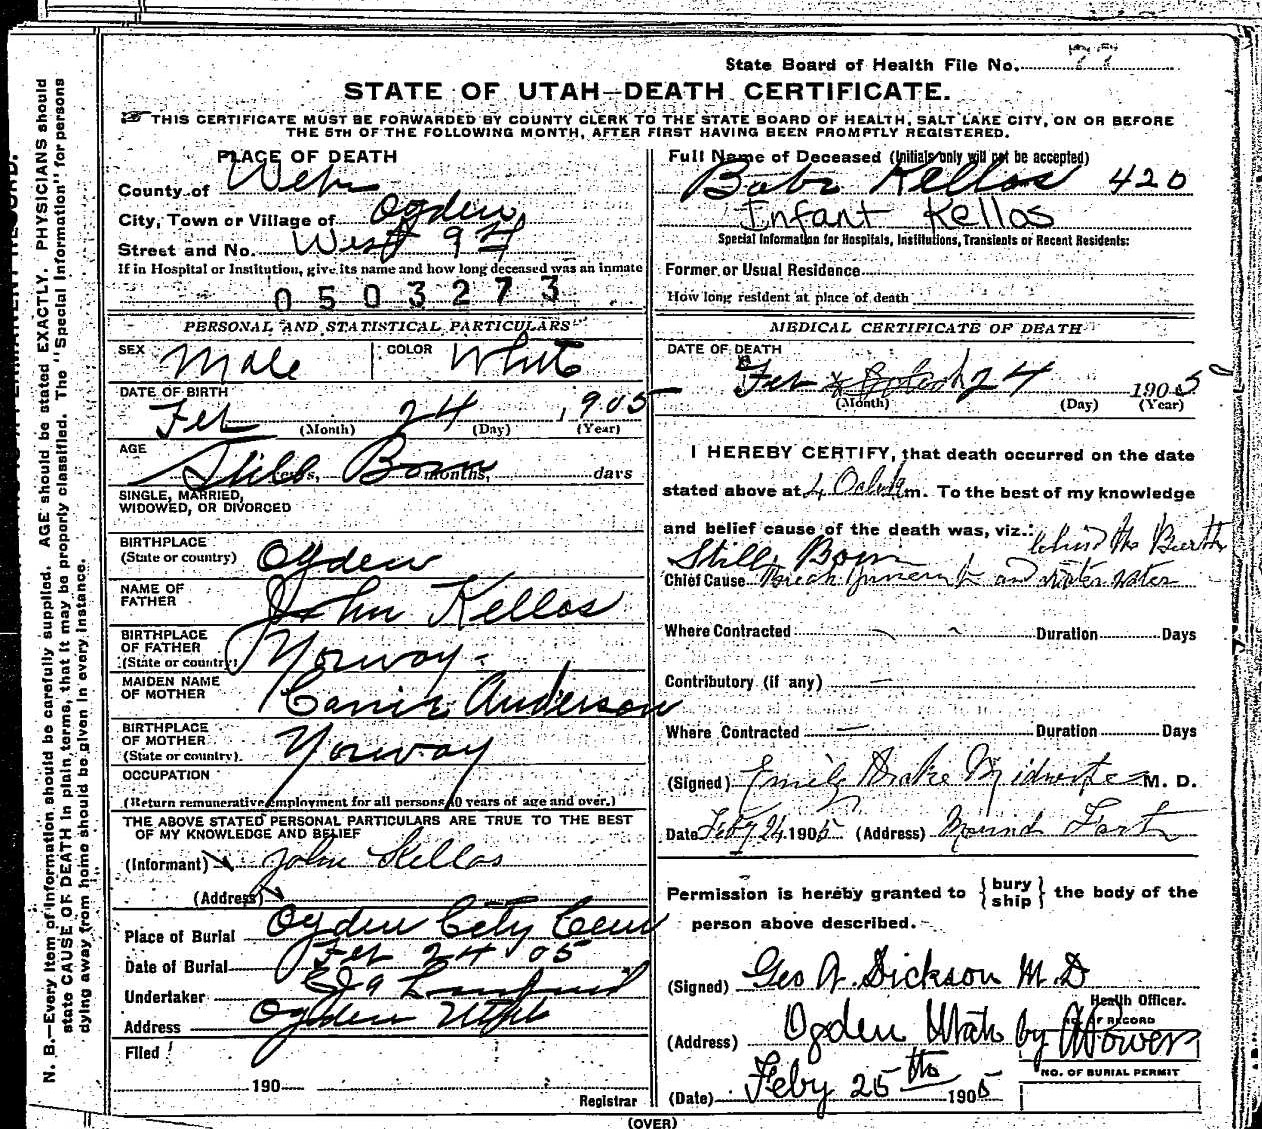 State Board of Health File No. 77
STATE OF UTAH—DEATH CERTIFICATE.
THIS CERTIFICATE MUST BE FORWARDED BY COUNTY CLERK TO THE STATE BOARD OF HEALTH, SALT LAKE CITY, ON OR BEFORE
THE 5TH OF THE FOLLOWING MONTH, AFTER FIRST HAVING BEEN PROMPTLY REGISTERED.
PLACE OF DEATH
County of Weber
City, Town or Village of Ogden
Street and No. West
If in Hospital or Institution, give its name and how long deceased was an inmate
0503273
PERSONAL AND STATISTICAL PARTICULARS
SEX Male COLOR White
DATE OF BIRTH
Feb 24, 1905
(Month) (Day) (Year)
AGE
Still Born
years, months, days
SINGLE, MARRIED,
WIDOWED, OR DIVORCED
BIRTHPLACE
(State or country) Ogden
NAME OF
FATHER John Kellos
BIRTHPLACE
OF FATHER
(State or country) Norway
MAIDEN NAME
OF MOTHER Carrie Anderson
BIRTHPLACE
OF MOTHER
(State or country). Norway
OCCUPATION
(Return remunerative employment for all persons 10 years of age and over.)
THE ABOVE STATED PERSONAL PARTICULARS ARE TRUE TO THE BEST
OF MY KNOWLEDGE AND BELIEF
(Informant) John Kellos
(Address)
Place of Burial Ogden City Cem
Date of Burial Feb 24 05
Undertaker
Address Ogden Utah
Filed
190
Registrar
Full Name of Deceased (Initials only will not be accepted)
Babe Kellos 420
Infant Kellos
Special Information for Hospitals, Institutions, Transients or Recent Residents:
Former or Usual Residence
How long resident at place of death
MEDICAL CERTIFICATE OF DEATH
DATE OF DEATH
Feb 24 1905
(Month) (Day) (Year)
I HEREBY CERTIFY, that death occurred on the date
stated above at 4 Oclock m. To the best of my knowledge
and belief cause of the death was, viz.: behind the Buerth
Still Born
Chief Cause and water
Where Contracted Duration Days
Contributory (if any)
Where Contracted Duration Days
(Signed) Emily Drake Midwife M. D.
Date Feby 24 1905 (Address) Mound Fort
Permission is hereby granted to { bury ship } the body of the
person above described.
(Signed) Geo A. Dickson M.D
Health Officer.
OF RECORD
(Address) Ogden Utah by Power
NO. OF BURIAL PERMIT
(Date) Feby 25th 1905
(OVER)
N. B.—Every item of information should be carefully supplied. AGE should be stated EXACTLY. PHYSICIANS should
state CAUSE OF DEATH in plain terms, that it may be properly classified. The "Special Information" for persons
dying away from home should be given in every instance.